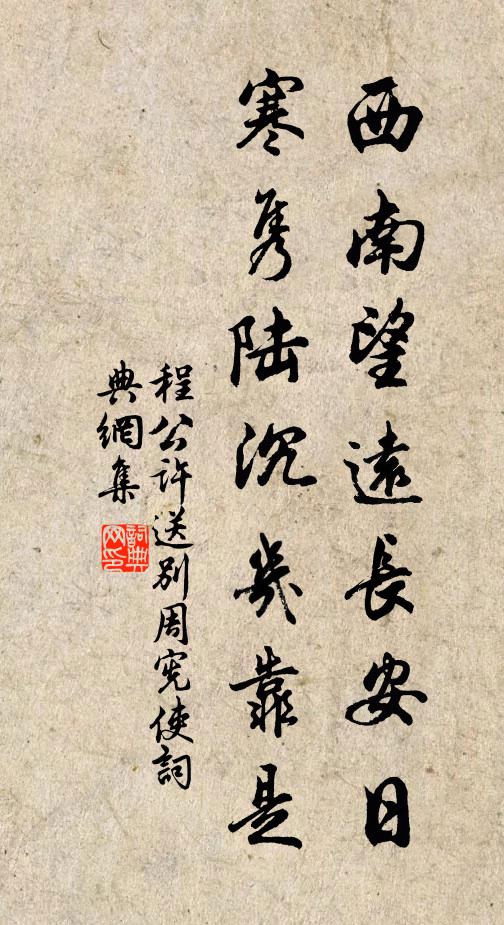 西南望遠長安日
寒隽陆沉几靠是
程公許送別周宪使詞
典網集
詞典网印